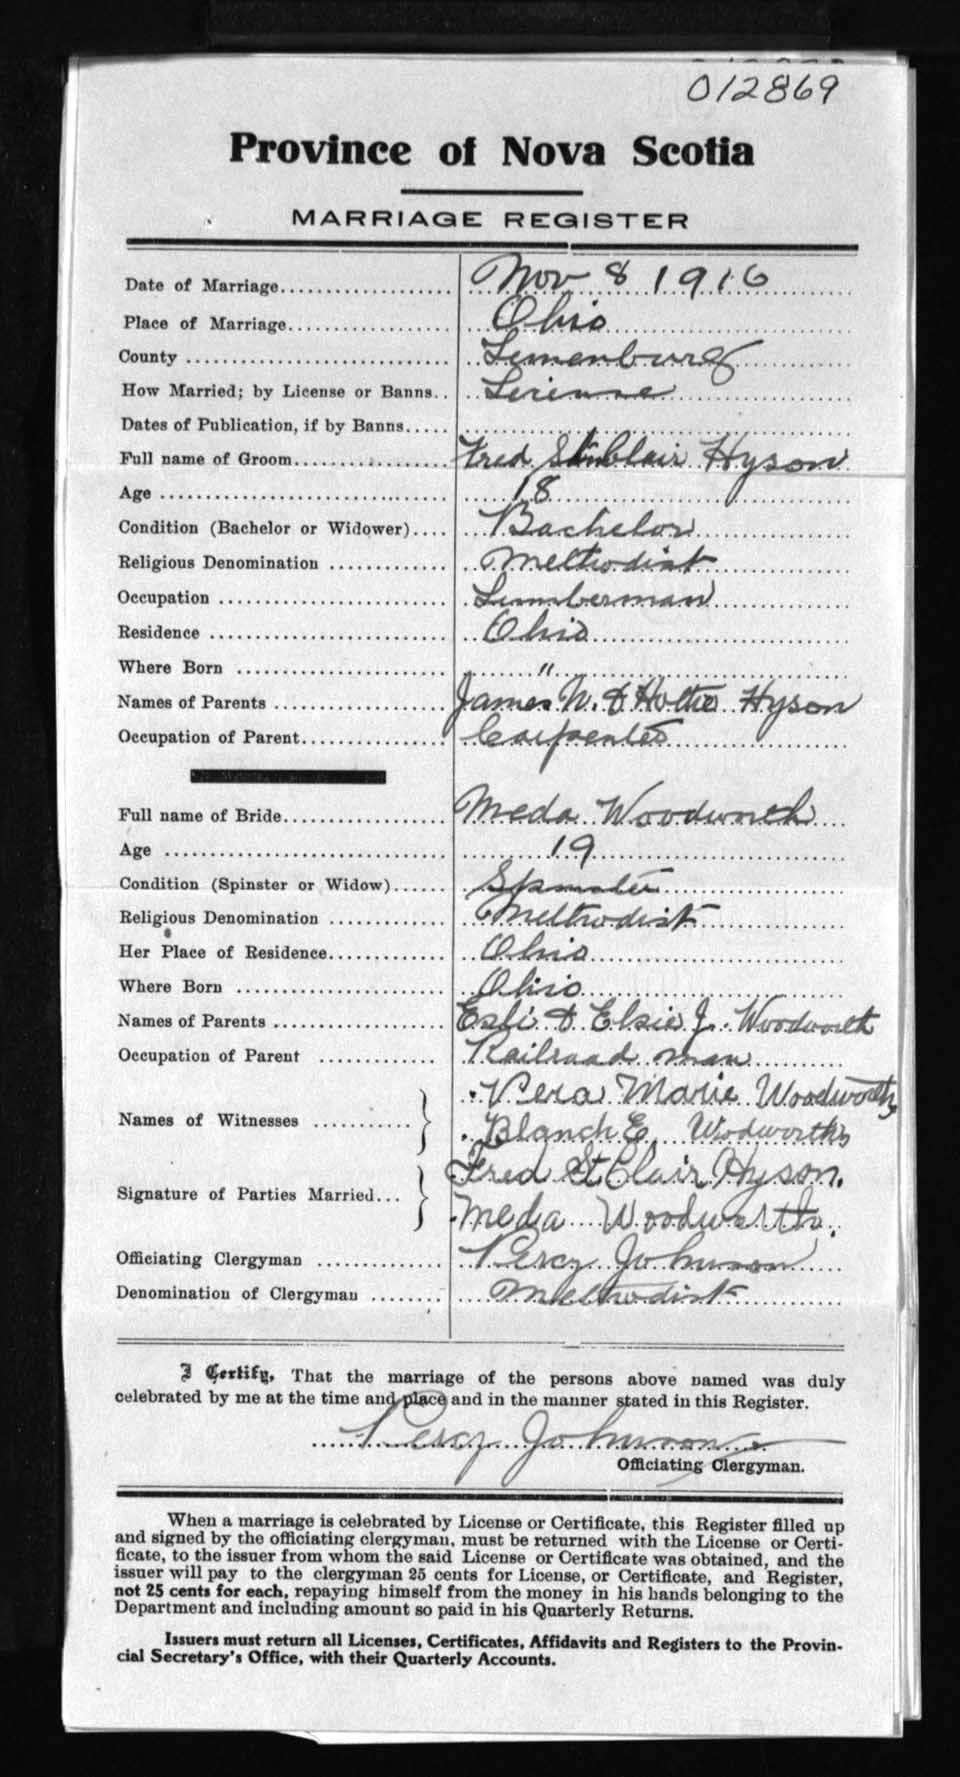 012869
Province of Nova Scotia
MARRIAGE REGISTER
Date of Marriage Nov 8 1916
Place of Marriage Ohio
County Lunenburg
How Married; by License or Banns License
Dates of Publication, if by Banns
Full name of Groom Fred St Clair Hyson
Age 18
Condition (Bachelor or Widower) Bachelor
Religious Denomination Methodist
Occupation Lumberman
Residence Ohio
Where Born "
Names of Parents James W. & Hyson
Occupation of Parent Carpenter
Full name of Bride Meda Woodworth
Age 19
Condition (Spinster or Widow) Spinster
Religious Denomination Methodist
Her Place of Residence Ohio
Where Born Ohio
Names of Parents Esli & Elsie J. Woodworth
Occupation of Parent Railroad man
Names of Witnesses Vera Marie Woodworth
Blanch E. Wodworth
Signature of Parties Married Fred St Clair Hyson.
Meda Woodworth.
Officiating Clergyman Percy Johnson
Denomination of Clergyman Methodist
I Certify, That the marriage of the persons above named was duly
celebrated by me at the time and place and in the manner stated in this Register.
Percy Johnson
Officiating Clergyman.
When a marriage is celebrated by License or Certificate, this Register filled up
and signed by the officiating clergyman, must be returned with the License or Certi-
ficate, to the issuer from whom the said License or Certificate was obtained, and the
issuer will pay to the clergyman 25 cents for License, or Certificate, and Register,
not 25 cents for each, repaying himself from the money in his hands belonging to the
Department and including amount so paid in his Quarterly Returns.
Issuers must return all Licenses, Certificates, Affidavits and Registers to the Provin-
cial Secretary's Office, with their Quarterly Accounts.